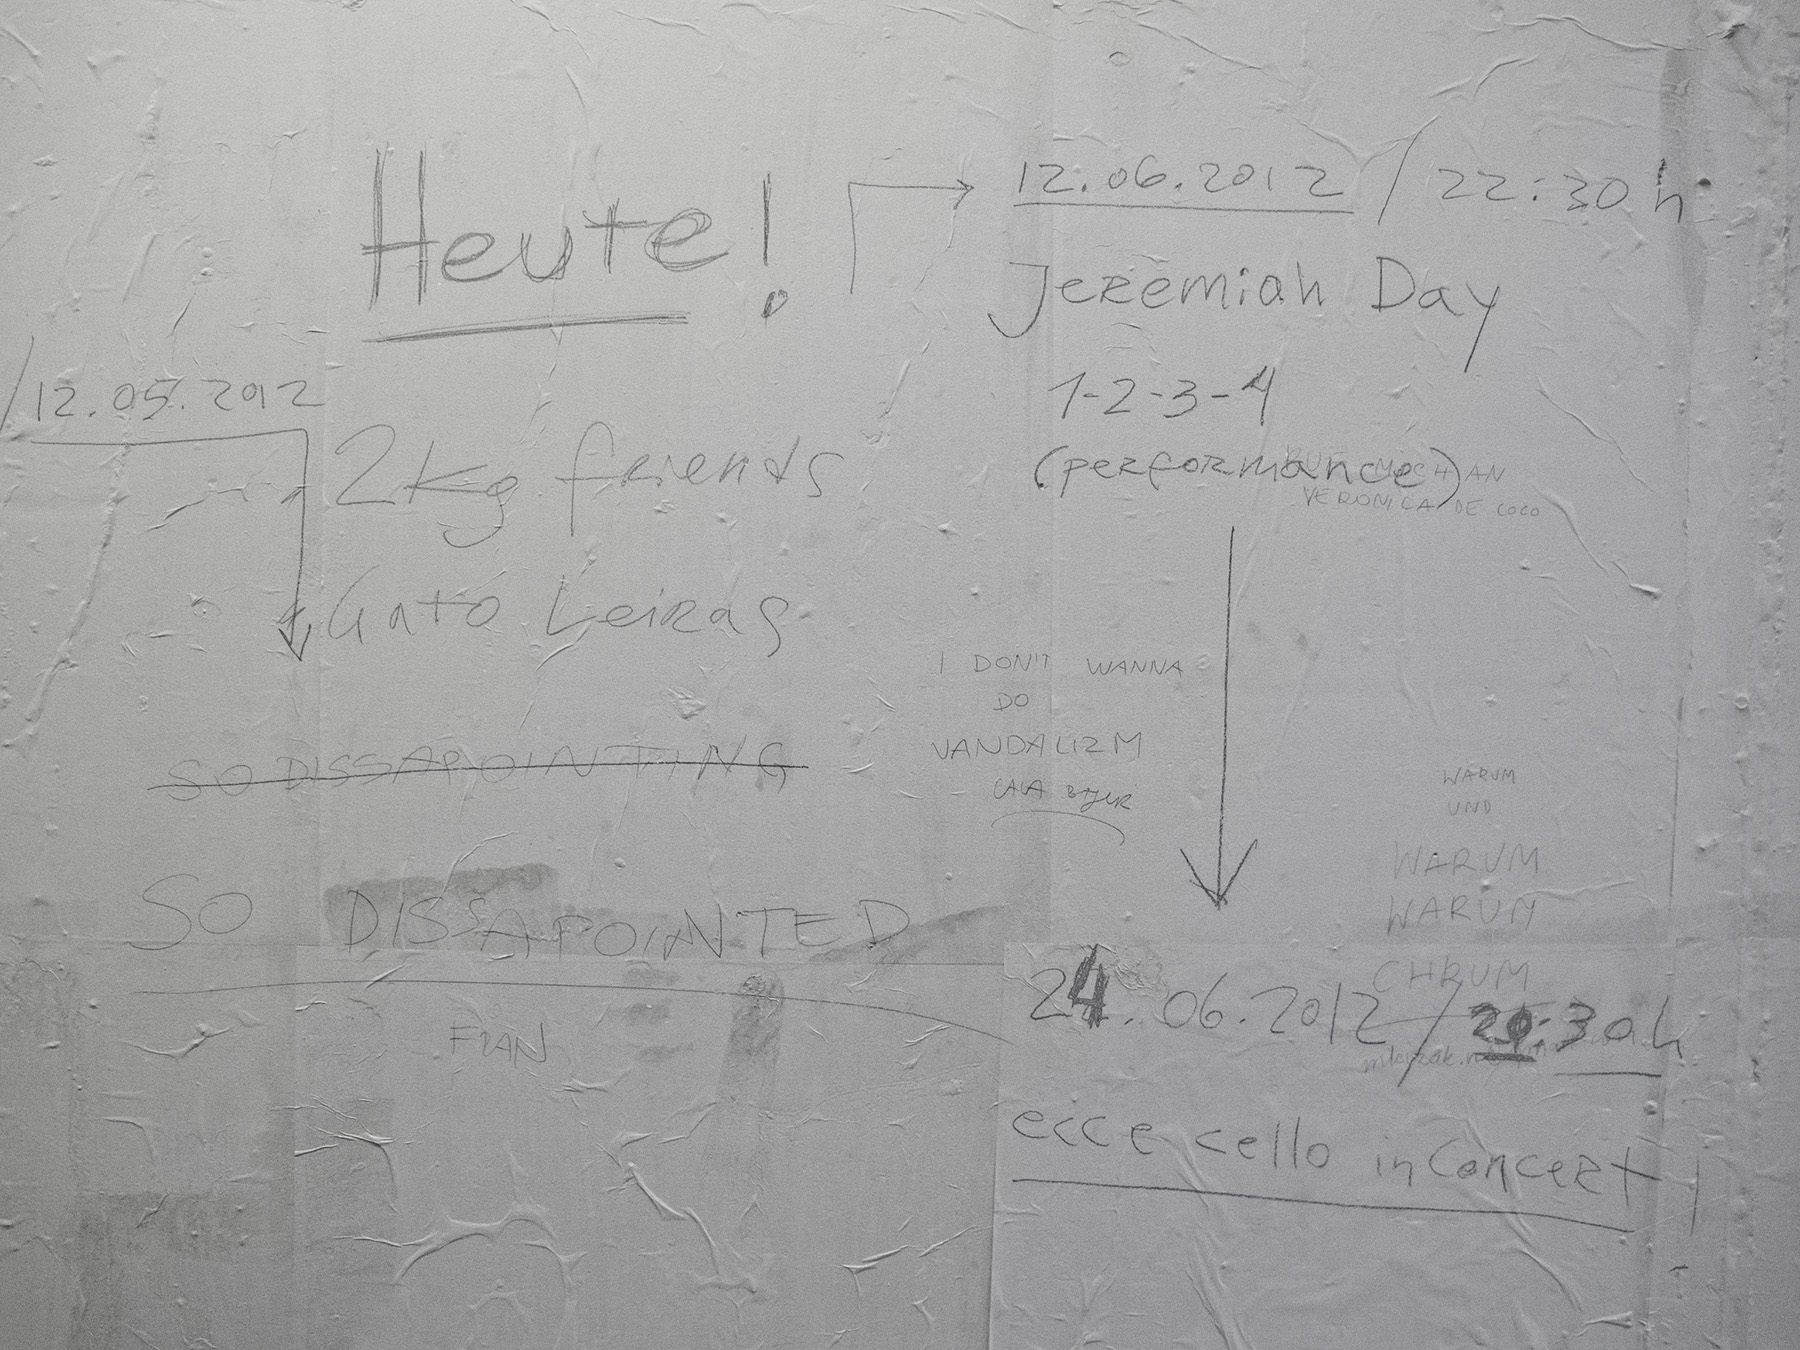 Heute!
12.06.2012 / 22:30 h
Jeremiah Day
1-2-3-4
(performance)
VERONICA DE COCO
/12.05.2012
2kg friends
Gato Leiras
I DON'T WANNA
DO
VANDALIZM
SO DISSAPOINTING
SO DISSAPOINTED
WARUM
UND
WARUM
WARUM
CHRUM
24.06.2012 / 20:30h
ecce cello in concert